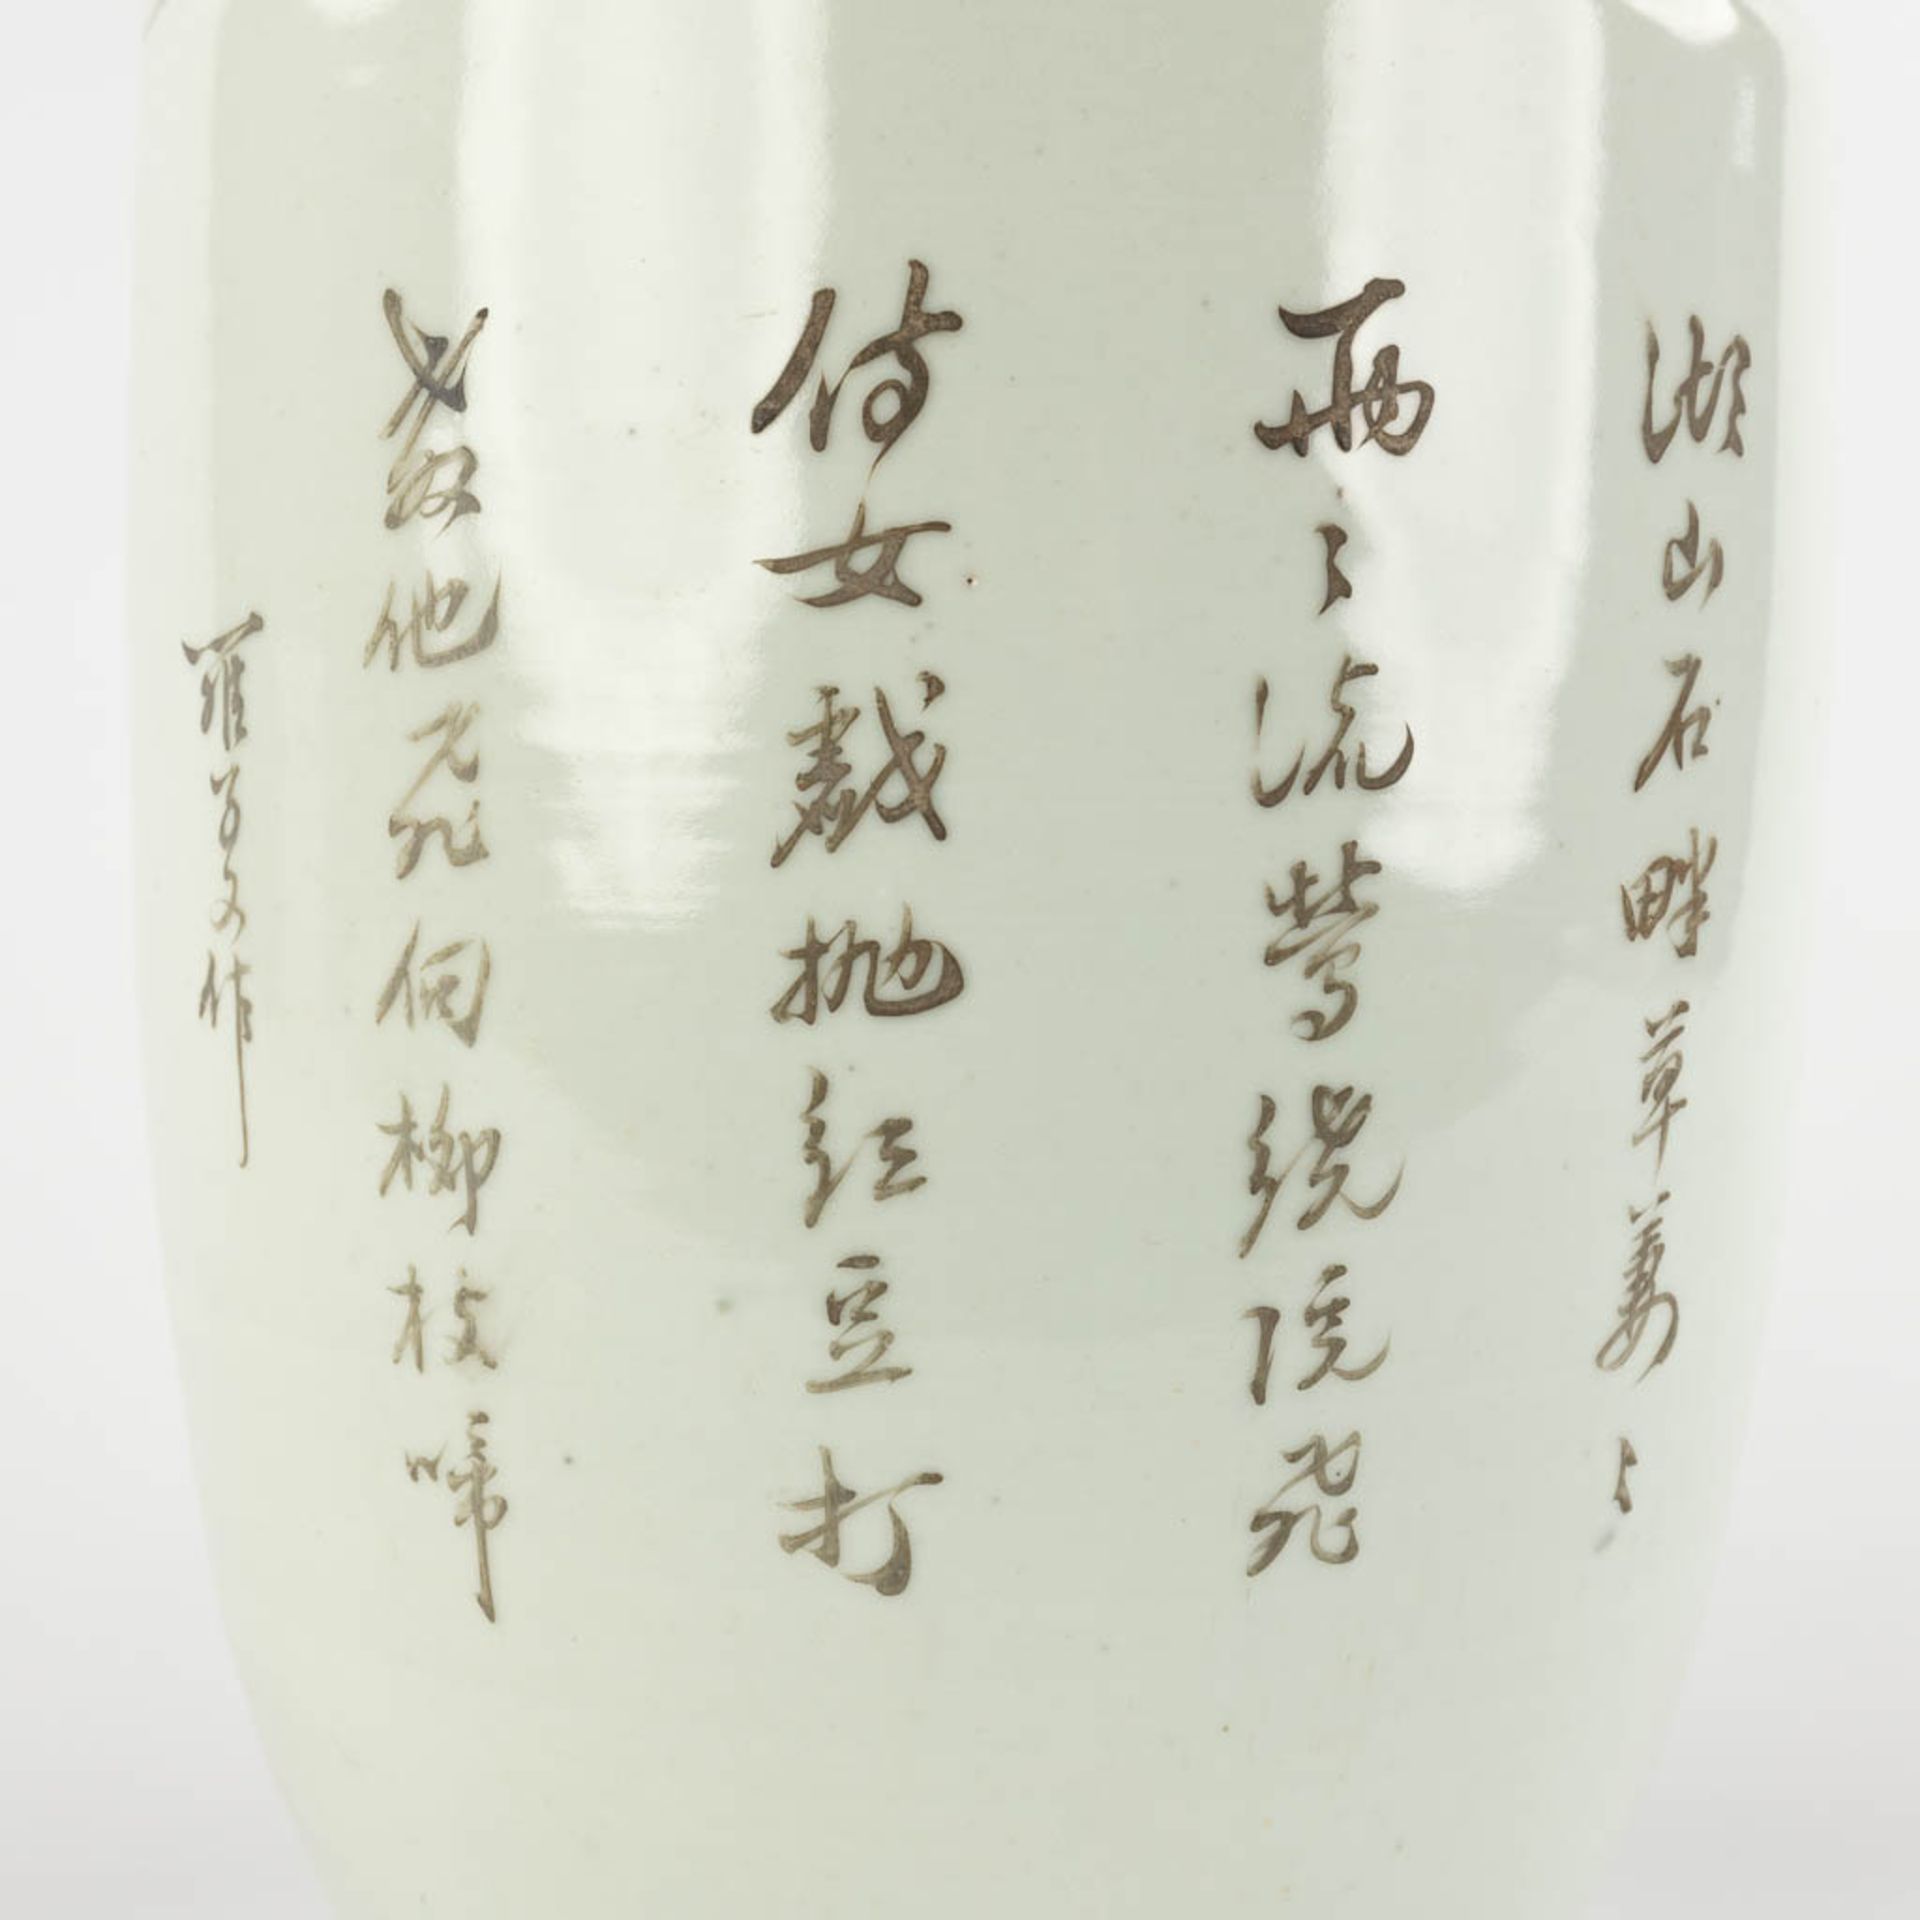 湖山石畔草萋〻
兩〻流鶯繞院飛
侍女戲拋紅豆打
教他飛向柳枝啼
羅子文作